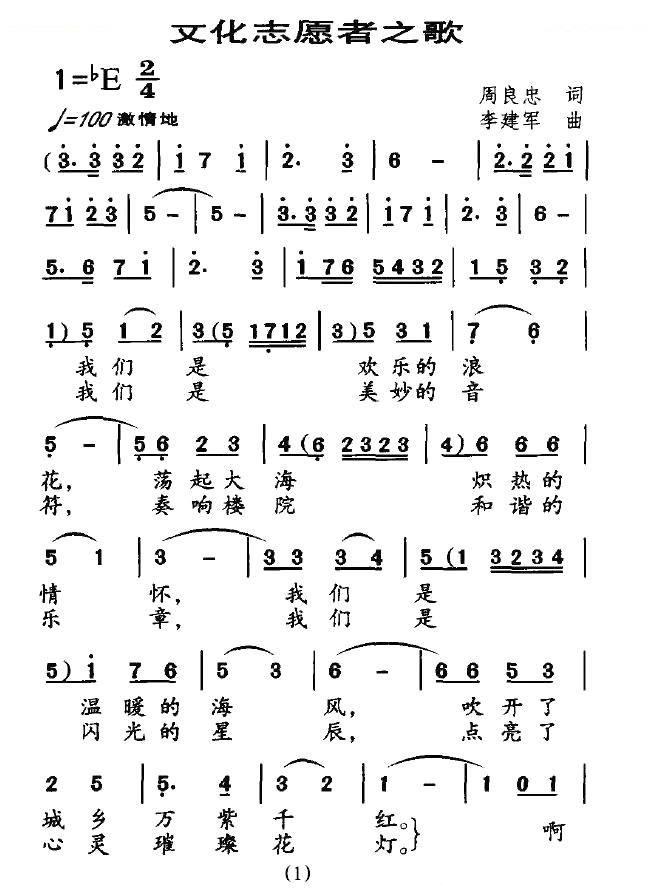 文化志愿者之歌
1=♭E 2/4
♩=100 激情地
周良忠 词
李建军 曲
(3. 3 3 2 | 1 7 1 | 2. 3 | 6 - | 2. 2 2 1 |
7 1 2 3 | 5 - | 5 - | 3. 3 3 2 | 1 7 1 | 2. 3 | 6 - |
5. 6 7 1 | 2. 3 | 1 7 6 5 4 3 2 | 1 5 3 2 |
1) 5 1 2 | 3 (5 1 7 1 2 | 3) 5 3 1 | 7 6 |
我们 是 欢乐的 浪
我们 是 美妙的 音
5 - | 5 6 2 3 | 4 (6 2 3 2 3 | 4) 6 6 6 |
花, 荡起大 海 炽热的
符, 奏响楼 院 和谐的
5 1 | 3 - | 3 3 3 4 | 5 (1 3 2 3 4 |
情 怀, 我们 是
乐 章, 我们 是
5) 1 7 6 | 5 3 | 6 - | 6 6 5 3 |
温 暖的 海 风, 吹开了
闪 光的 星 辰, 点亮了
2 5 | 5. 4 | 3 2 | 1 - | 1 0 1 |
城 乡 万 紫 千 红。
心 灵 璀 璨 花 灯。} 啊
(1)